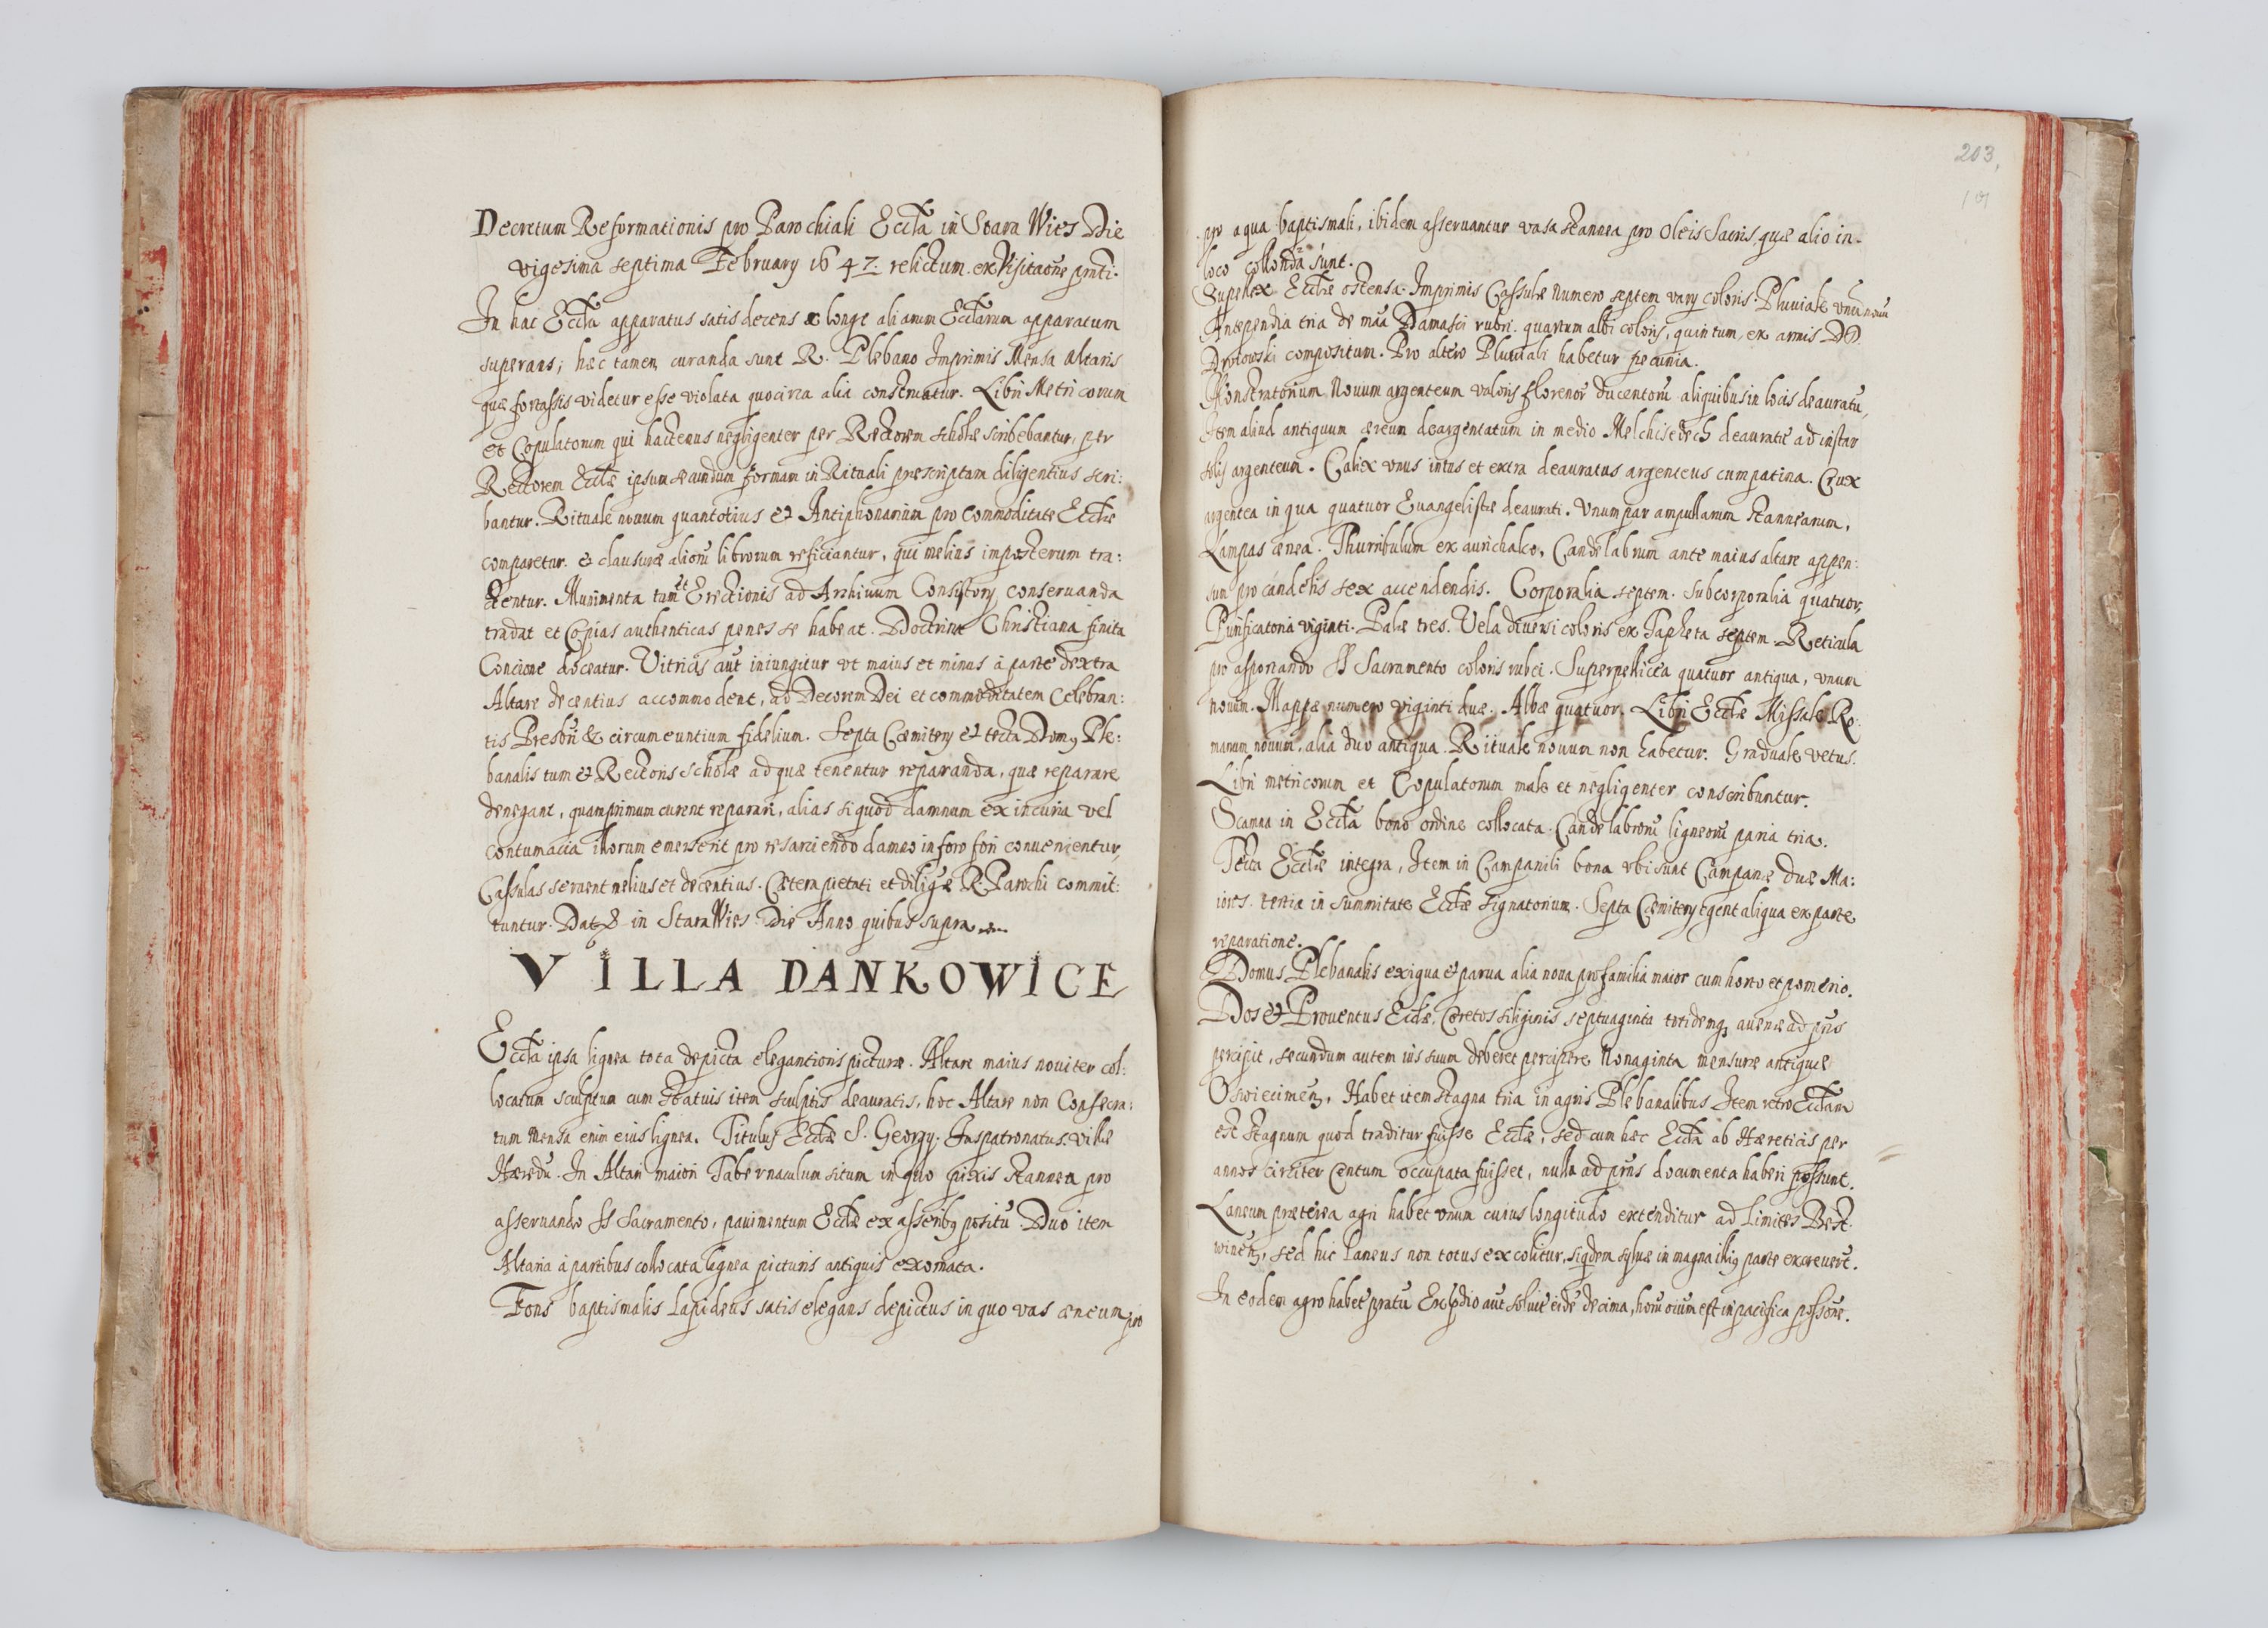 Decretum Reformationis pro Parochiali Eccła in Stara Wies Die
vigesima septima February 1647. relictum ex Visitaõne pñti.
In hac Eccła apparatus satis decens & longe aliarum Ecclarum apparatum
superans; hæc tamen curanda sunt R. Plebano Imprimis Mensa Altaris
quæ fortassis videtur esse violata quocirca alia construatur. Libri Metricorum
et Copulatorum qui hactenus negligenter per Rectorem scholæ scribebantur, per
Rectorem Eccłæ ipsum secundum formam in Rituali præscriptam diligentius scri:
bantur. Rituale novum quantotius et Antiphonarium pro commoditate Eccłæ
comparetur. & clausuræ alioru librorum reficiantur, qui melius imposterum tra:
ctentur. Munimenta tum et Erectionis ad Archivum Consistory conservanda
tradat et Copias authenticas penes se habeat. Doctrina Christiana finita
Concione doceatur. Vitricis aut iniungitur ut maius et minus à parte dextra
Altare decentius accommodent, ad Decorem Dei et commoditatem Celebran:
tis Presbri & circumeuntium fidelium. Septa Cæmitery et tecta Domus Ple:
banalis tum et Rectoris scholæ ad quæ tenentur reparanda, quæ reparare
denegant, quamprimum curent reparari, alias si quod damnum ex incuria vel
contumacia illorum emerserit pro resarciendo damno in foro fori convenientur,
Cassulas servent melius et decentius. Cætera pietati et diligæ R. Parochi commit:
tuntur. Dat in Stara Wies Die Anno quibus supra
VILLA DANKOWICE
Eccła ipsa lignea tota depicta elegantioris picturæ. Altare maius noviter col:
locatum sculptum cum statuis item sculptis deauratis, hoc Altare non Consecra:
tum Mensa enim eius lignea. Titulus Eccłæ S. Georgy. Juspatronatus Villæ
Hæredu. In Altari maiori Tabernaculum situm in quo pixis stannea pro
asservando SS Sacramento, pavimentum Eccłæ ex asseribus positu. Duo item
Altaria à partibus collocata lignea picturis antiquis exornata.
Fons baptismalis Lapideus satis elegans depictus in quo vas æneum pro
203.
pro aqua baptismali, ibidem asservantur vasa stannea pro Oleis Sacris, quæ alio in
loco collonda sunt.
Supellex Eccłæ ostensa. Imprimis Cassulæ numero septem vary coloris. Pluviale unu novu
Antependia tria de mãa Damasci rubri. quartum albi coloris, quintum ex armis DD
compositum. Pro altero Pluviali habetur pecunia.
Monstratorium Novum argenteum valoris florenorũ ducentorũ aliquibus in locis deauratũ,
Item aliud antiquum æreum deargentatum in medio Melchisedech deauratæ ad instar
solis argenteum. Calix unus intus et extra deauratus argenteus cum patina. Crux
argentea in qua quatuor Evangelistæ deaurati. Unum par ampullarum stannearum,
Lampas ænea. Thuribulum ex aurichalco, Candelabrum ante maius altare appen:
sum pro candelis sex accendendis. Corporalia septem. Subcorporalia quatuor,
Purificatoria viginti. Palæ tres. Vela diversi coloris ex Tapheta septem. Reticula
pro asportando SS Sacramento coloris rubei. Superpellicea quatuor antiqua, unum
novum. Mappæ numero viginti duæ. Albæ quatuor. Libri Eccłæ Missale Ro:
manum novum, alia duo antiqua. Rituale novum non habetur. Graduale vetus.
Libri metricorum et Copulatorum male et negligenter conscribuntur.
Scamna in Eccła bono ordine collocata. Candelabrorũ ligneorũ paria tria.
Tecta Eccłæ integra, Item in Campanili bona ubi sunt Campanæ duæ Ma:
iores. tertia in summitate Eccłæ signatorium. Septa Cæmitery egent aliqua ex parte
reparatione.
Domus Plebanalis exigua et parva alia nova pro familia maior cum horto et pomerio.
Dos et Proventus Eccłæ, Coretos siliginis septuaginta totidemq avenæ ad prũs
percipit, secundum autem ius suum deberet percipere Nonaginta mensuræ antiquæ
Oswiecimeñ. Habet item stagna tria in agris Plebanalibus Item retro Ecclam
est stagnum quod traditur fuisse Eccłæ, sed cum hæc Eccła ab Hæreticis per
annos circiter Centum occupata fuisset, nulla ad prñs documenta haberi possunt.
Laneum præterea agri habet unum cuius longitudo extenditur ad limites Best:
wineñ, sed hic laneus non totus excolitur, siqdem sylvæ in magna illius parte excreverũt.
In eodem agro habet pratũ Ex aut solvit decima, horũ oium est in pacifica possone.